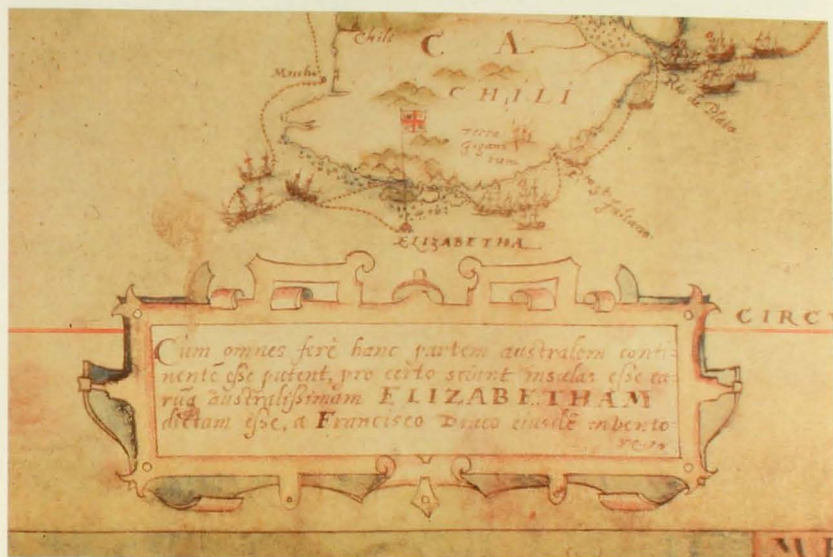 Chili
C A
CHILI
Terra
Gigan
tum
Rio de Plata
ELIZABETHA
CIRCV
Cum omnes ferè hanc partem australem conti-
nentē esse putent, pro certo sciunt insulas esse ea-
rūq australissimam ELIZABETHAM
dictam esse, a Francisco Draco eiusdē inbento-
re